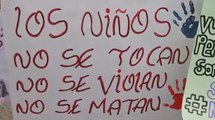 LOS NIÑOS
NO SE TOCAN
NO SE VIOLAN
NO SE MATAN